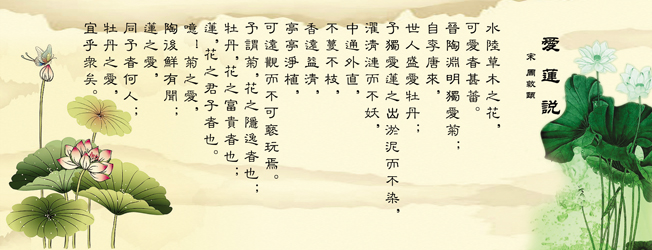 愛蓮説
宋 周敦頤
水陸草木之花，
可愛者甚蕃。
晉陶淵明獨愛菊；
自李唐來，
世人盛愛牡丹；
予獨愛蓮之出淤泥而不染，
濯清漣而不妖，
中通外直，
不蔓不枝，
香遠益清，
亭亭淨植，
可遠觀而不可褻玩焉。
予謂菊，花之隱逸者也；
牡丹，花之富貴者也；
蓮，花之君子者也。
噫！菊之愛，
陶後鮮有聞；
蓮之愛，
同予者何人；
牡丹之愛，
宜乎衆矣。